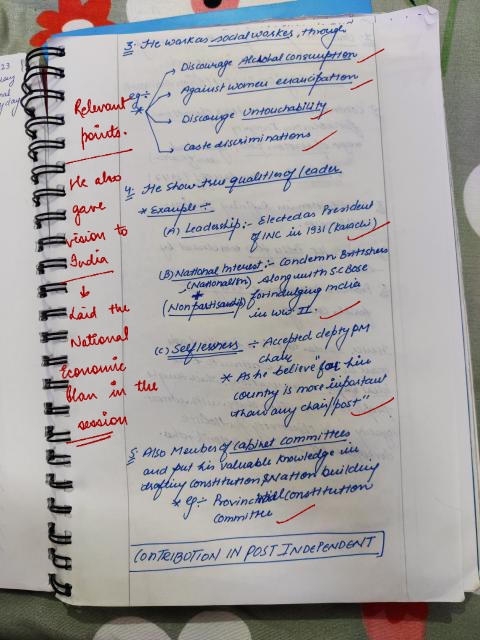 3. He work as social worker, through
eg:- * Discourage Alchohal Consumption
Against women emancipation
Discourage Untouchability
Caste discriminations
Relevant
points.
He also
gave
vision to
India
↓
Laid the
National
Economic
Plan in the
session
4. He show true qualities of leader
* Example ÷
(A) Leadership:- Elected as President
of INC in 1931 (Karachi)
(B) National Interest:- Condemn Britishers
(Nationalism) along with S.C Bose
+
(Nonpartisanship) for indulging India
in WW II.
(C) Selflessness ÷ Accepted depty PM
chair
* As he believe "for him
country is more important
than any chair/post"
5. Also Member of Cabinet Committees
and put his valuable knowledge in
drafting Constitution & Nation building
* eg:- Provincial Constitution
Committee
CONTRIBUTION IN POST INDEPENDENT